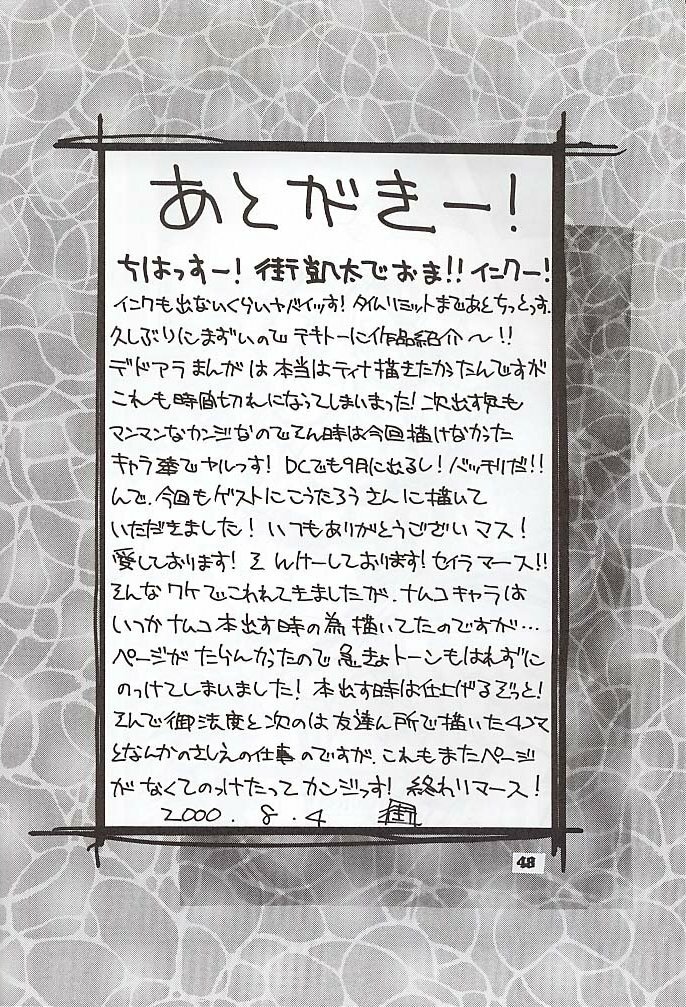 あとがきー!
ちはっすー! 街凱太でおま!! インクー!
インクも出ないくらいヤバイッす! タイムリミットまであとちっとっす.
久しぶりにまずいのでテキトーに作品紹介〜!!
デドアラまんがは本当はティナ描きたかったんですが
これも時間切れになってしまいまった! 次出す気も
マンマンなカンジなのでそん時は今回描けなかった
キャラ達でヤルっす! DCでも9月に出るし! バッチリだ!!
んで、今回もゲストにこうたろうさんに描いて
いただきました! いつもありがとうございマス!
愛しております! そんけーしております! セイラマース!!
そんなワケでこわれてきましたが、ナムコキャラは
いつかナムコ本出す時の為描いてたのですが…
ページがたらんかったので急きょトーンもはれずに
のっけてしまいました! 本出す時は仕上げるぞっと!
そんで御法度と次のは友達ん所で描いた4コマ
となんかのさしえの仕事のですが、これもまたページ
がなくてのっけたってカンジっす! 終わりマース!
2000.8.4 街
48